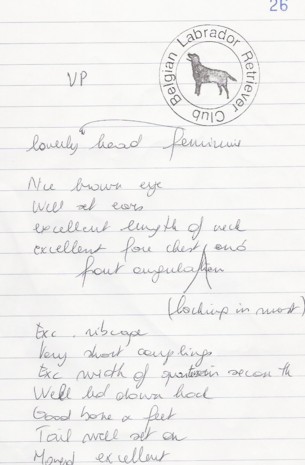 26
Belgian Labrador Retriever Club
VP
lovely head feminine
Nice brown eye
Well set ears
excellent length of neck
excellent fore chest and
front angulation
(lacking in most)
Exc. ribcage
Very short couplings
Exc width of second th
Well let down hock
Good bone & feet
Tail well set on
Moved excellent